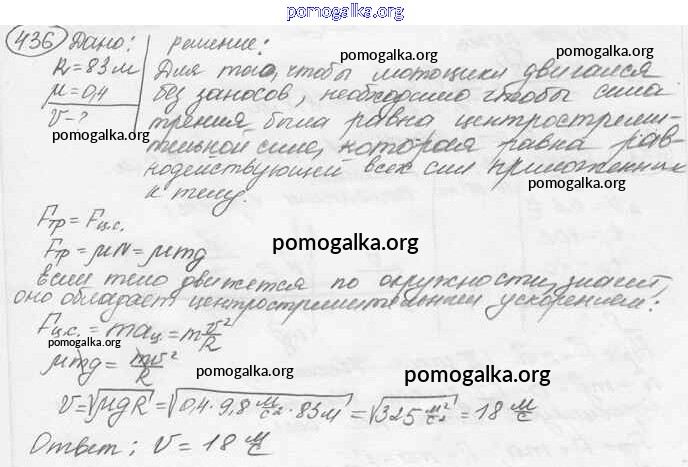 pomogalka.org
436 Дано: Решение:
R = 83 м Для того, чтобы мотоцикл двигался
μ = 0,4 без заносов, необходимо чтобы сила
V - ? трения была равна центростреми-
тельной силе, которая равна рав-
нодействующей всех сил приложенных
к телу.
pomogalka.org
pomogalka.org
pomogalka.org
pomogalka.org
pomogalka.org
Fтр = Fц.с.
Fтр = μN = μmg
pomogalka.org
Если тело движется по окружности, значит,
оно обладает центростремительным ускорением:
Fц.с. = maц = m v²/R
pomogalka.org
pomogalka.org
μmg = mv²/R
pomogalka.org
V = √μgR = √0,4 · 9,8 м/с² · 83 м = √325 м²/с² = 18 м/с
Ответ: V = 18 м/с